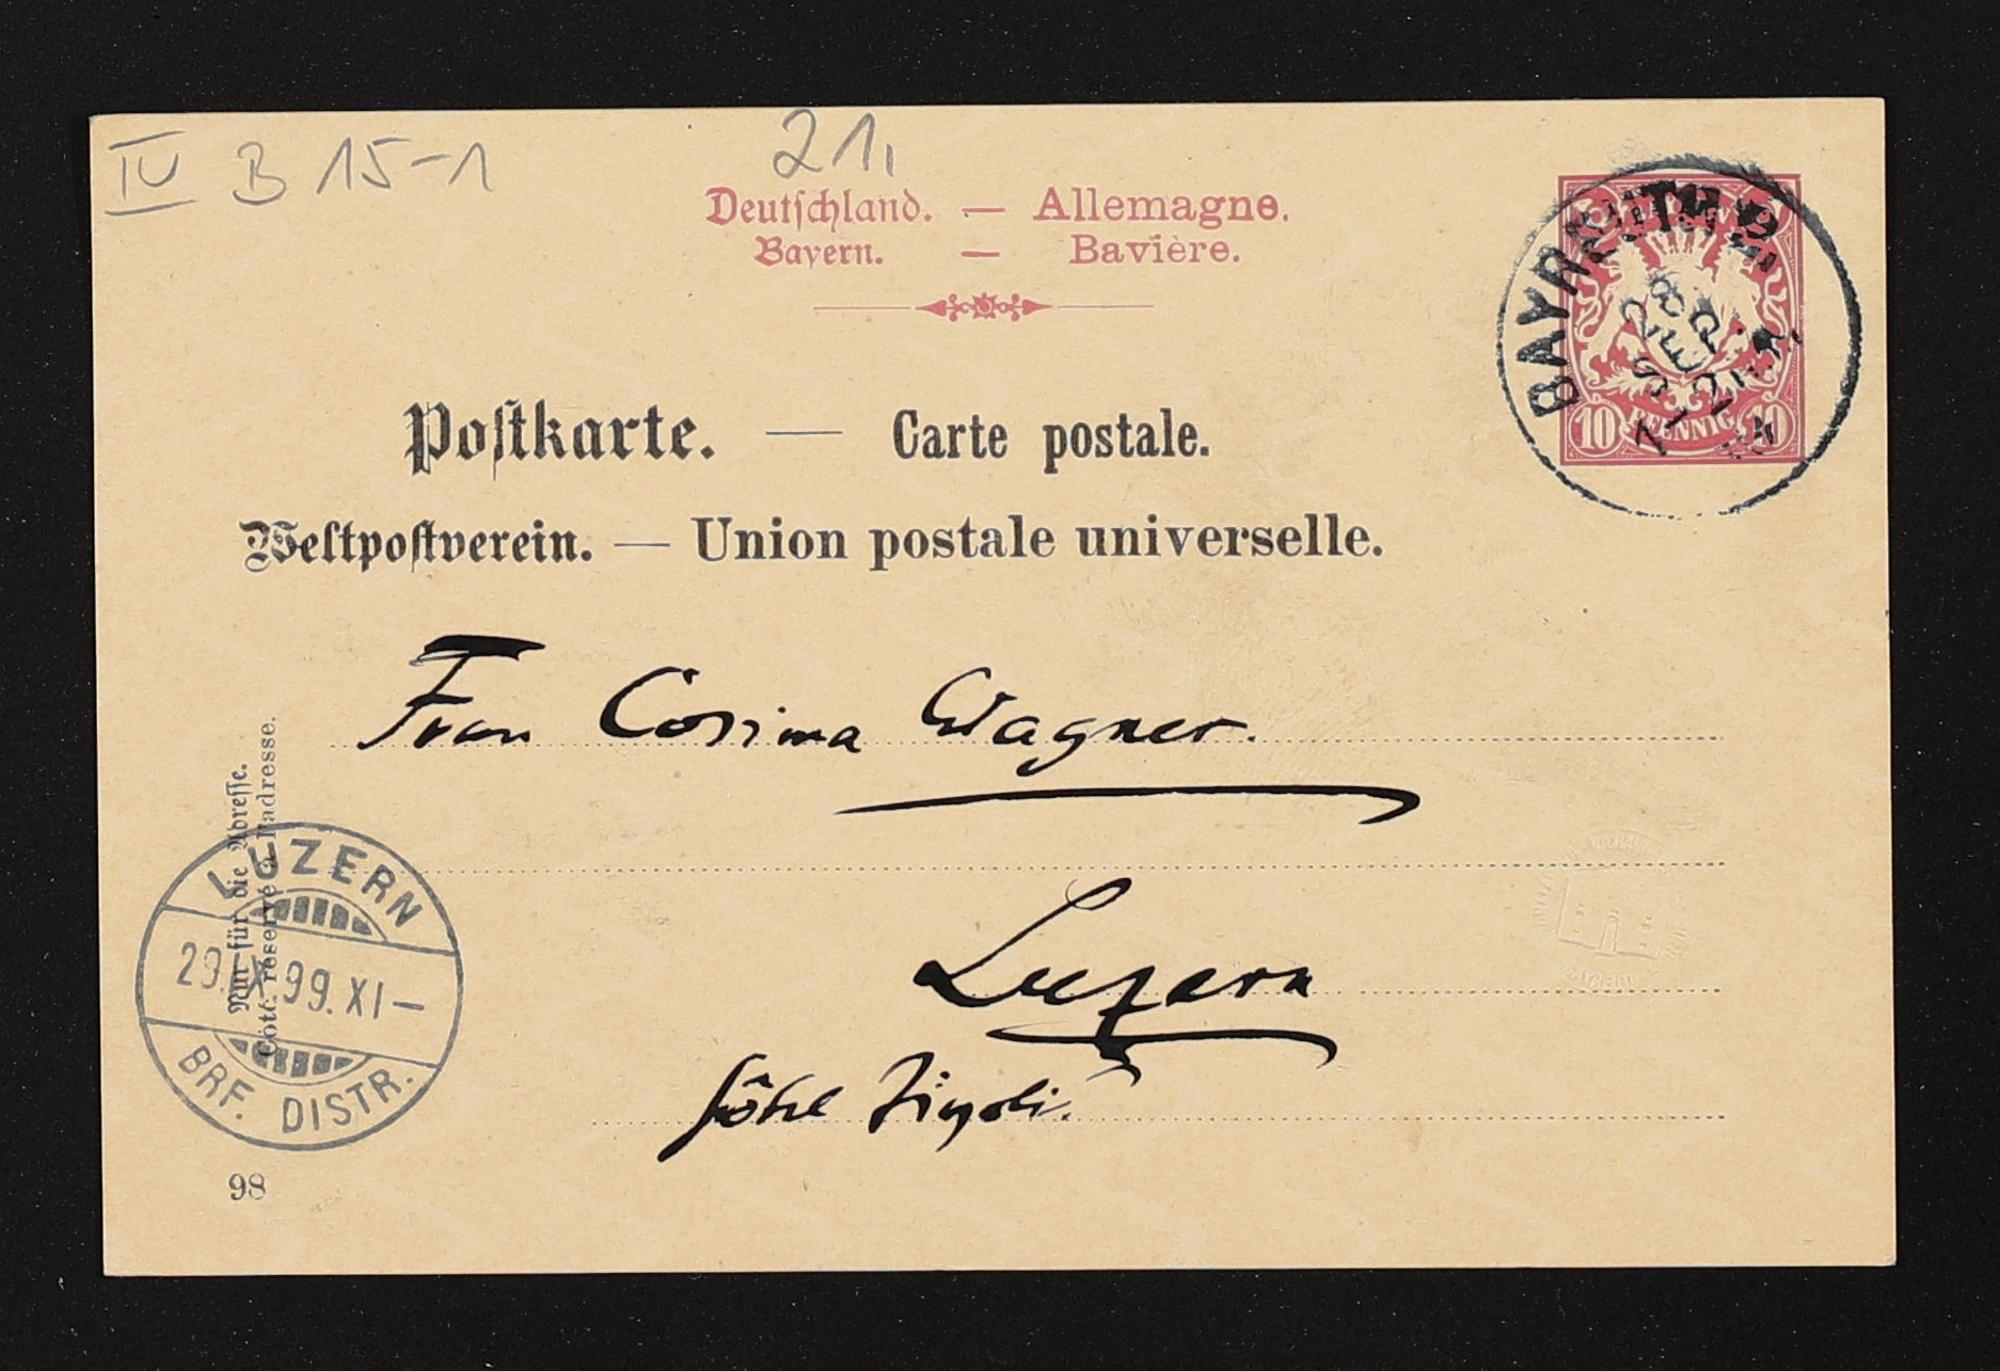 IV B 15-1
21,
Deutschland. — Allemagne.
Bayern. — Bavière.
BAYREUTH 2.
28
SEP
7 12 N.
10 PFENNIG 10
Postkarte. — Carte postale.
Weltpostverein. — Union postale universelle.
Frau Cosima Wagner.
Luzern
Hôtel Tivoli.
Nur für die Adresse.
Côté réservé à l'adresse.
LUZERN
29.IX.99.XI—
BRF. DISTR.
98